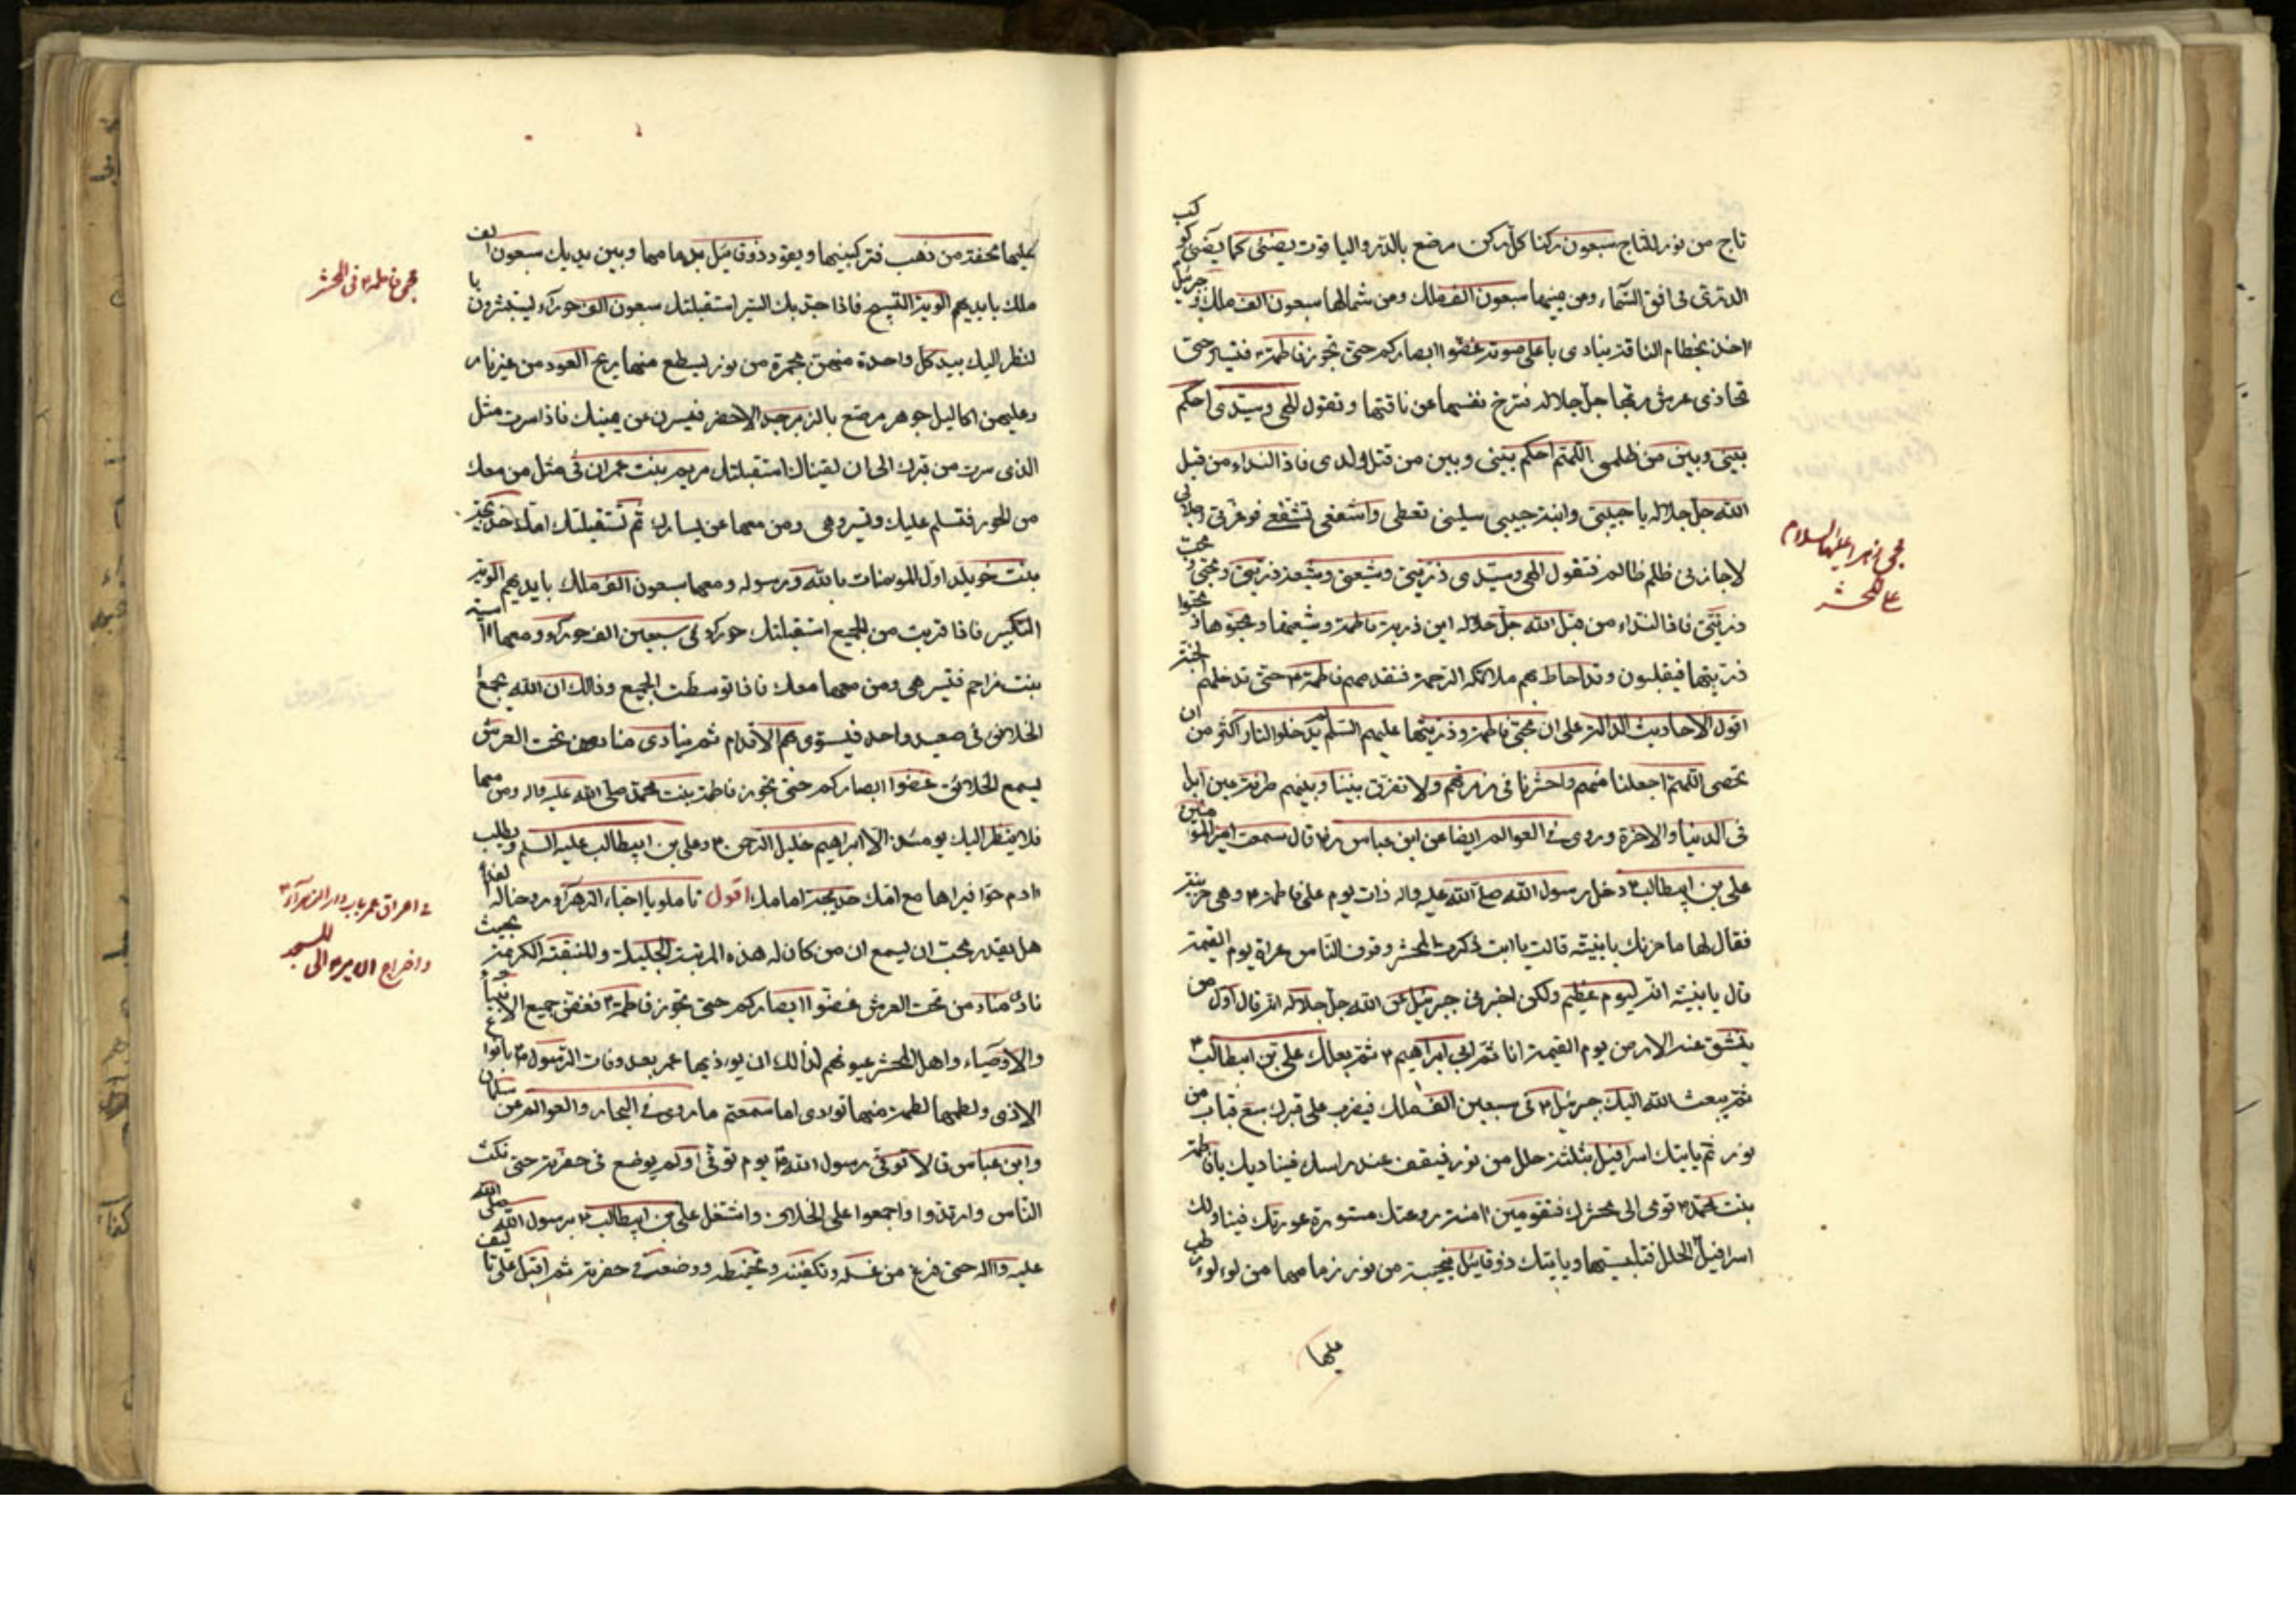 تاج من نور للتاج سبعون ركنا كل ركن مرصع بالدر والياقوت يضئ كما يضئ كوكب
الدرى فى افق السماء ومن يمينها سبعون الف ملك ومن شمالها سبعون الف ملك و جبرئيل
اخذ بخطام الناقة ينادى باعلى صوته غضوا ابصاركم حتى تجوز فاطمة فتسير حتى
تحاذى عرش ربها جل جلاله فتزخ نفسها عن ناقتها وتقول الهى وسيدى احكم
بينى وبين من ظلمنى اللهم احكم بينى وبين من قتل ولدى فاذا النداء من قبل
الله جل جلاله يا حبيبتى وابنة حبيبى سلينى تعطى واشفعى تشفعى فوعزتى وجلالى
لا جازنى ظلم ظالم فتقول الهى وسيدى ذريتى وشيعتى وشيعة ذريتى ومحبى و محب
ذريتى فاذا النداء من قبل الله جل جلاله اين ذرية فاطمة وشيعتها ومحبوها و محبوا
ذريتها فيقبلون وقد احاط بهم ملائكة الرحمة فتقدمهم فاطمة ٣ حتى تدخلهم الجنة
اقول الاحاديث الدالة على ان محبى فاطمة وذريتها عليهم السلم لم يدخلوا النار اكثر من ان
تحصى اللهم اجعلنا منهم واحشرنا فى زمرتهم ولا تفرق بيننا وبينهم طرفة عين ابدا
فى الدنيا والاخرة وروى فى العوالم ايضا عن ابن عباس رض قال سمعت امير المؤمنين
على بن ابيطالب ٣ دخل رسول الله صلى الله عليه واله ذات يوم على فاطمة ٣ وهى حزينة
فقال لها ما حزنك يا بنية قالت يا ابت ذكرت المحشر وقوف الناس عراة يوم القيمة
قال يا بنية انه ليوم عظيم ولكن اخبرنى جبرئيل عن الله جل جلاله انه قال اول من
ينشق عنه الارض يوم القيمة انا ثم ابى ابراهيم ٣ ثم بعلك على بن ابيطالب ٣
ثم يبعث الله اليك جبرئيل ٣ فى سبعين الف ملك فيضرب على قبرك سبع قباب من
نور ثم ياتيك اسرافيل بثلثة حلل من نور فيقف عند راسك فيناديك يا فاطمة
بنت محمد ٣ قومى الى محشرك فتقومين امنة روعتك مستورة عورتك فيناولك
اسرافيل الحلل فتلبسيها وياتيك ذوقائيل بنجيبة من نور زمامها من لؤلؤ رطب
عليها
مجئ زهرا عليها السلام
فى المحشر
عليها محفة من ذهب فتركبينها ويقود ذوقائيل بزمامها وبين يديك سبعون الف
ملك بايديهم الوية التسبيح فاذا جد بك السير استقبلتك سبعون الف حوراء يستبشرون با
لنظر اليك بيد كل واحدة منهن مجمرة من نور يسطع منها ريح العود من غير نار
وعليهن اكاليل جوهر مرصع بالزبرجد الاخضر فيسرن عن يمينك فاذا سرت مثل
الذى سرت من قبرك الى ان لقيناك استقبلتك مريم بنت عمران فى مثل من معك
من الحور فتسلم عليك وتسير وهى ومن معها عن يسارك ثم تستقبلتك امك خديجة
بنت خويلد اول المومنات بالله ورسوله ومعها سبعون الف ملك بايديهم الوية
التكبير فاذا قربت من الجمع استقبلتك حوراء فى سبعين الف حوراء ومعها اسية
بنت مزاحم فتسير هى ومن معها معك فاذا توسطت الجمع وذالك ان الله يجمع
الخلائق فى صعيد واحد فيستوى بهم الاقدام ثم ينادى مناد من تحت العرش
يسمع الخلائق غضوا ابصاركم حتى تجوز فاطمة بنت محمد صلى الله عليه واله ومن معها
فلا ينظر اليك يومئذ الا ابراهيم خليل الرحمن ٣ وعلى بن ابيطالب عليه السلم ويطلب
ادم حوا فيراها مع امك خديجة امامك اقول تاملو يا احباء الزهراء
هل يقدر محب ان يسمع ان من كان له هذه المرتبة الجليلة والمنقبة الكريمة بحيث
نادى مناد من تحت العرش غضوا ابصاركم حتى تجوز فاطمة ٣ فغض جميع الانبياء
والاوصياء واهل المحشر عيونهم لذالك ان يوءذيها عمر بعد وفات الرسول ٣ بانواع
الاذى ولطمها لطمة اما سمعتم ما روى فى البحار والعوالم عن سلمان
وابن عباس قالا توفى رسول الله ٣ يوم توفى اولم يوضع فى حفرته حتى نكث
الناس وارتدوا واجمعوا على الخلاف واشتغل على بن ابيطالب ٣ برسول الله صلى الله
عليه واله حتى فرغ من غسله وتكفينه وتحنيطه ووضعه فى حفرته ثم اقبل على تاليف
مجئ فاطمة ٣ فى المحشر
فى احراق عمر باب دار الزهراء ٣
واخراج الامير ٣ الى المسجد